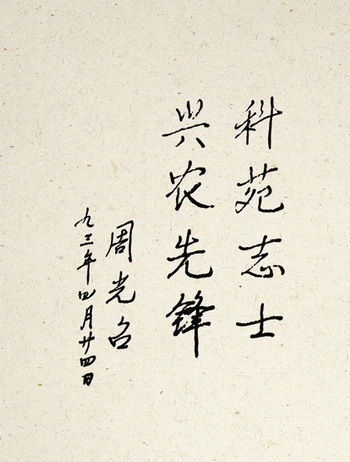 科苑志士
兴农先锋
周光召
九三年四月廿四日